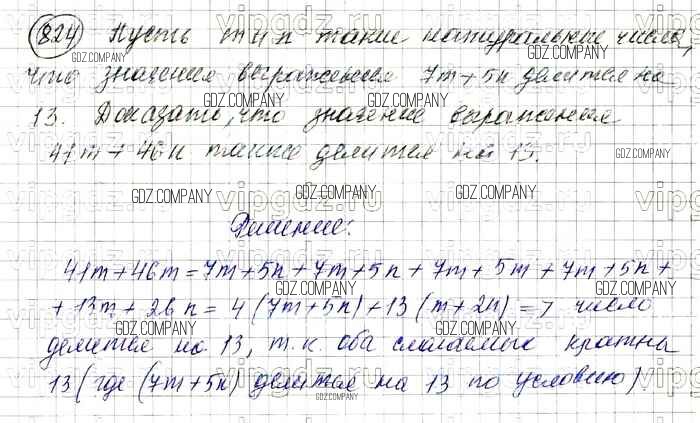 824 Пусть m и n такие натуральные числа,
что значения выражения 7m + 5n делится на
13. Доказать, что значение выражения
41m + 46n также делится на 13.
Решение:
41m + 46m = 7m + 5n + 7m + 5n + 7m + 5m + 7m + 5n +
+ 13m + 26n = 4 (7m + 5n) + 13 (m + 2n) => число
делится на 13, т.к. оба слагаемых кратны
13 (где (7m + 5n) делится на 13 по условию)